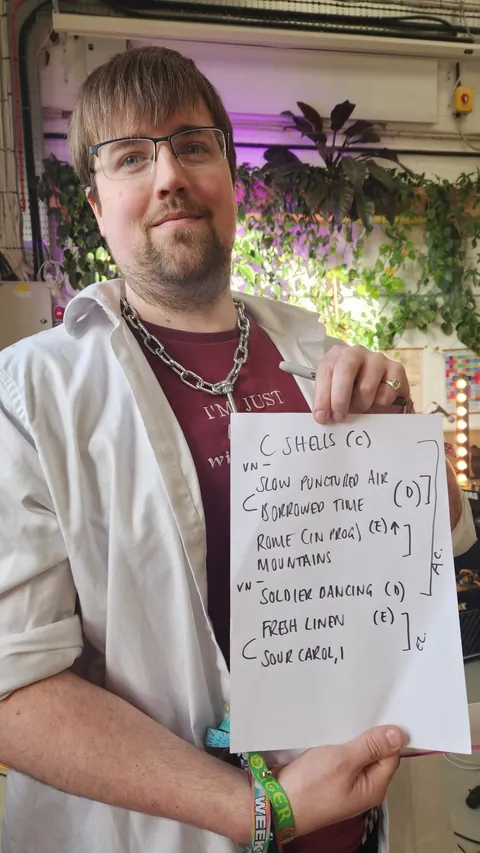 I'M JUST
C SHELLS (C)
VN-
SLOW PUNCTURED AIR
BORROWED TIME (D)
ROME (IN PROG) (E)↑
MOUNTAINS
VN-
SOLDIER DANCING (D)
FRESH LINEN (E)
SOUR CAROL, I
WEEK